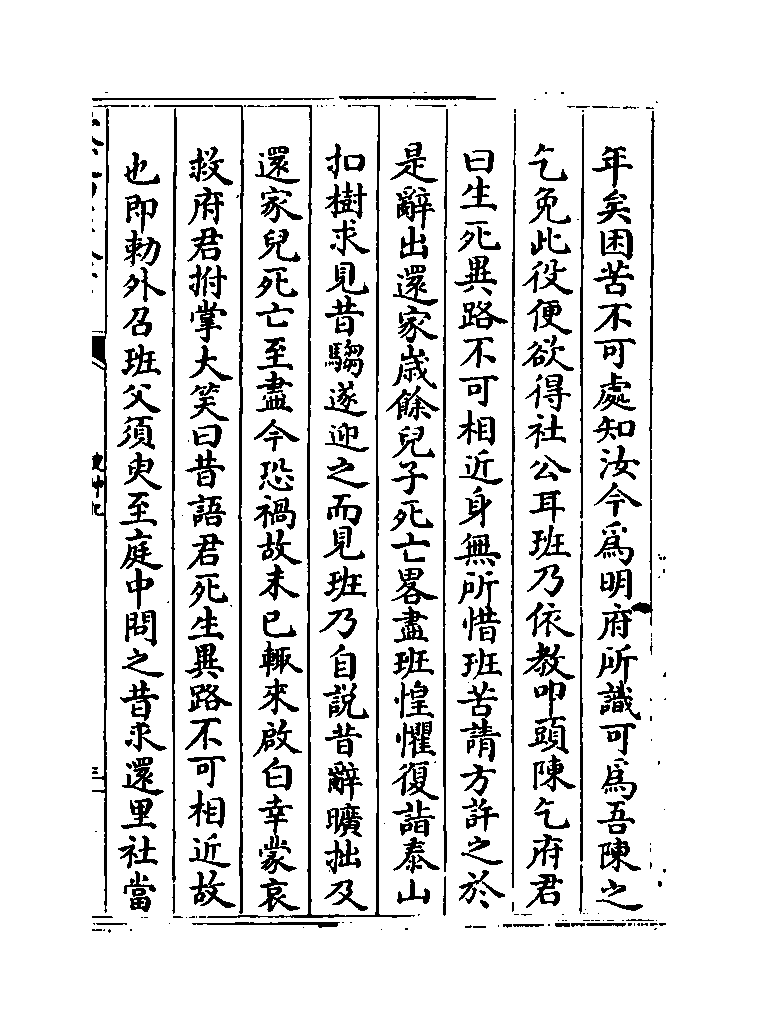 年矣困苦不可處知汝今為明府所識可為吾陳之
乞免此役便欲得社公耳班乃依教叩頭陳乞府君
曰生死異路不可相近身無所惜班苦請方許之於
是辭出還家嵗餘兒子死亡畧盡班惶懼復詣泰山
扣樹求見昔騶遂迎之而見班乃自説昔辭曠拙及
還家兒死亡至盡今恐禍故未已輙來啟白幸蒙哀
救府君拊掌大笑曰昔語君死生異路不可相近故
也即勅外召班父須臾至庭中問之昔求還里社當